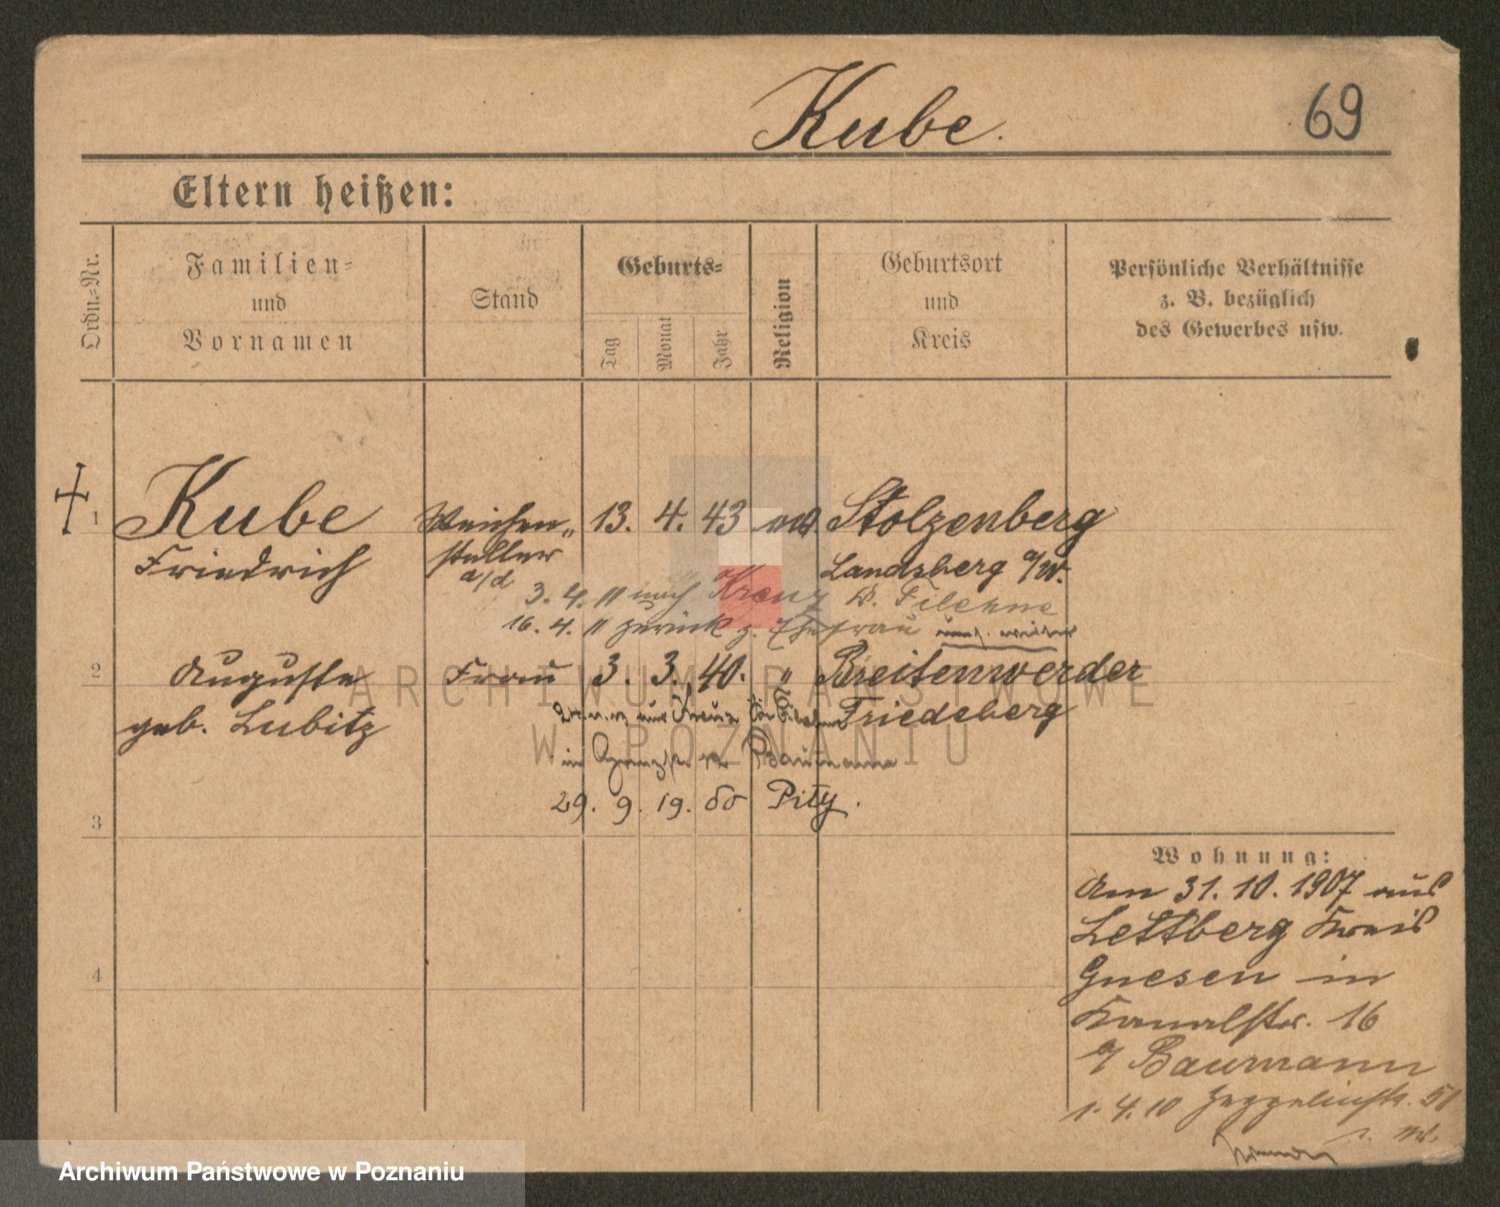 Kube.
69
Eltern heißen:
Ordn.-Nr.
Familien-
und
Vornamen
Stand
Geburts-
Tag
Monat
Jahr
Religion
Geburtsort
und
Kreis
Persönliche Verhältnisse
z. B. bezüglich
des Gewerbes usw.
1 Kube Weichen- 13. 4. 43 Stolzenberg
Friedrich steller Landsberg a/W.
a/d
3. 4. 11 nach Kreuz Kr. Filehne
16. 4. 11 zurück z. Ehefrau
2 Auguste Frau 3. 3. 40. " Breitenwerder
geb. Lubitz Friedeberg
Baumann
29. 9. 19.
3
4
Wohnung:
Am 31. 10. 1907 aus
Lettberg Kreis
Gnesen in
Kanalstr. 16
Baumann
1. 4. 10 Zeppelinstr.
ARCHIWUM PAŃSTWOWE
W POZNANIU
Archiwum Państwowe w Poznaniu